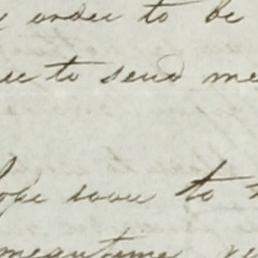 order to be
to send me
hope soon to
meantime